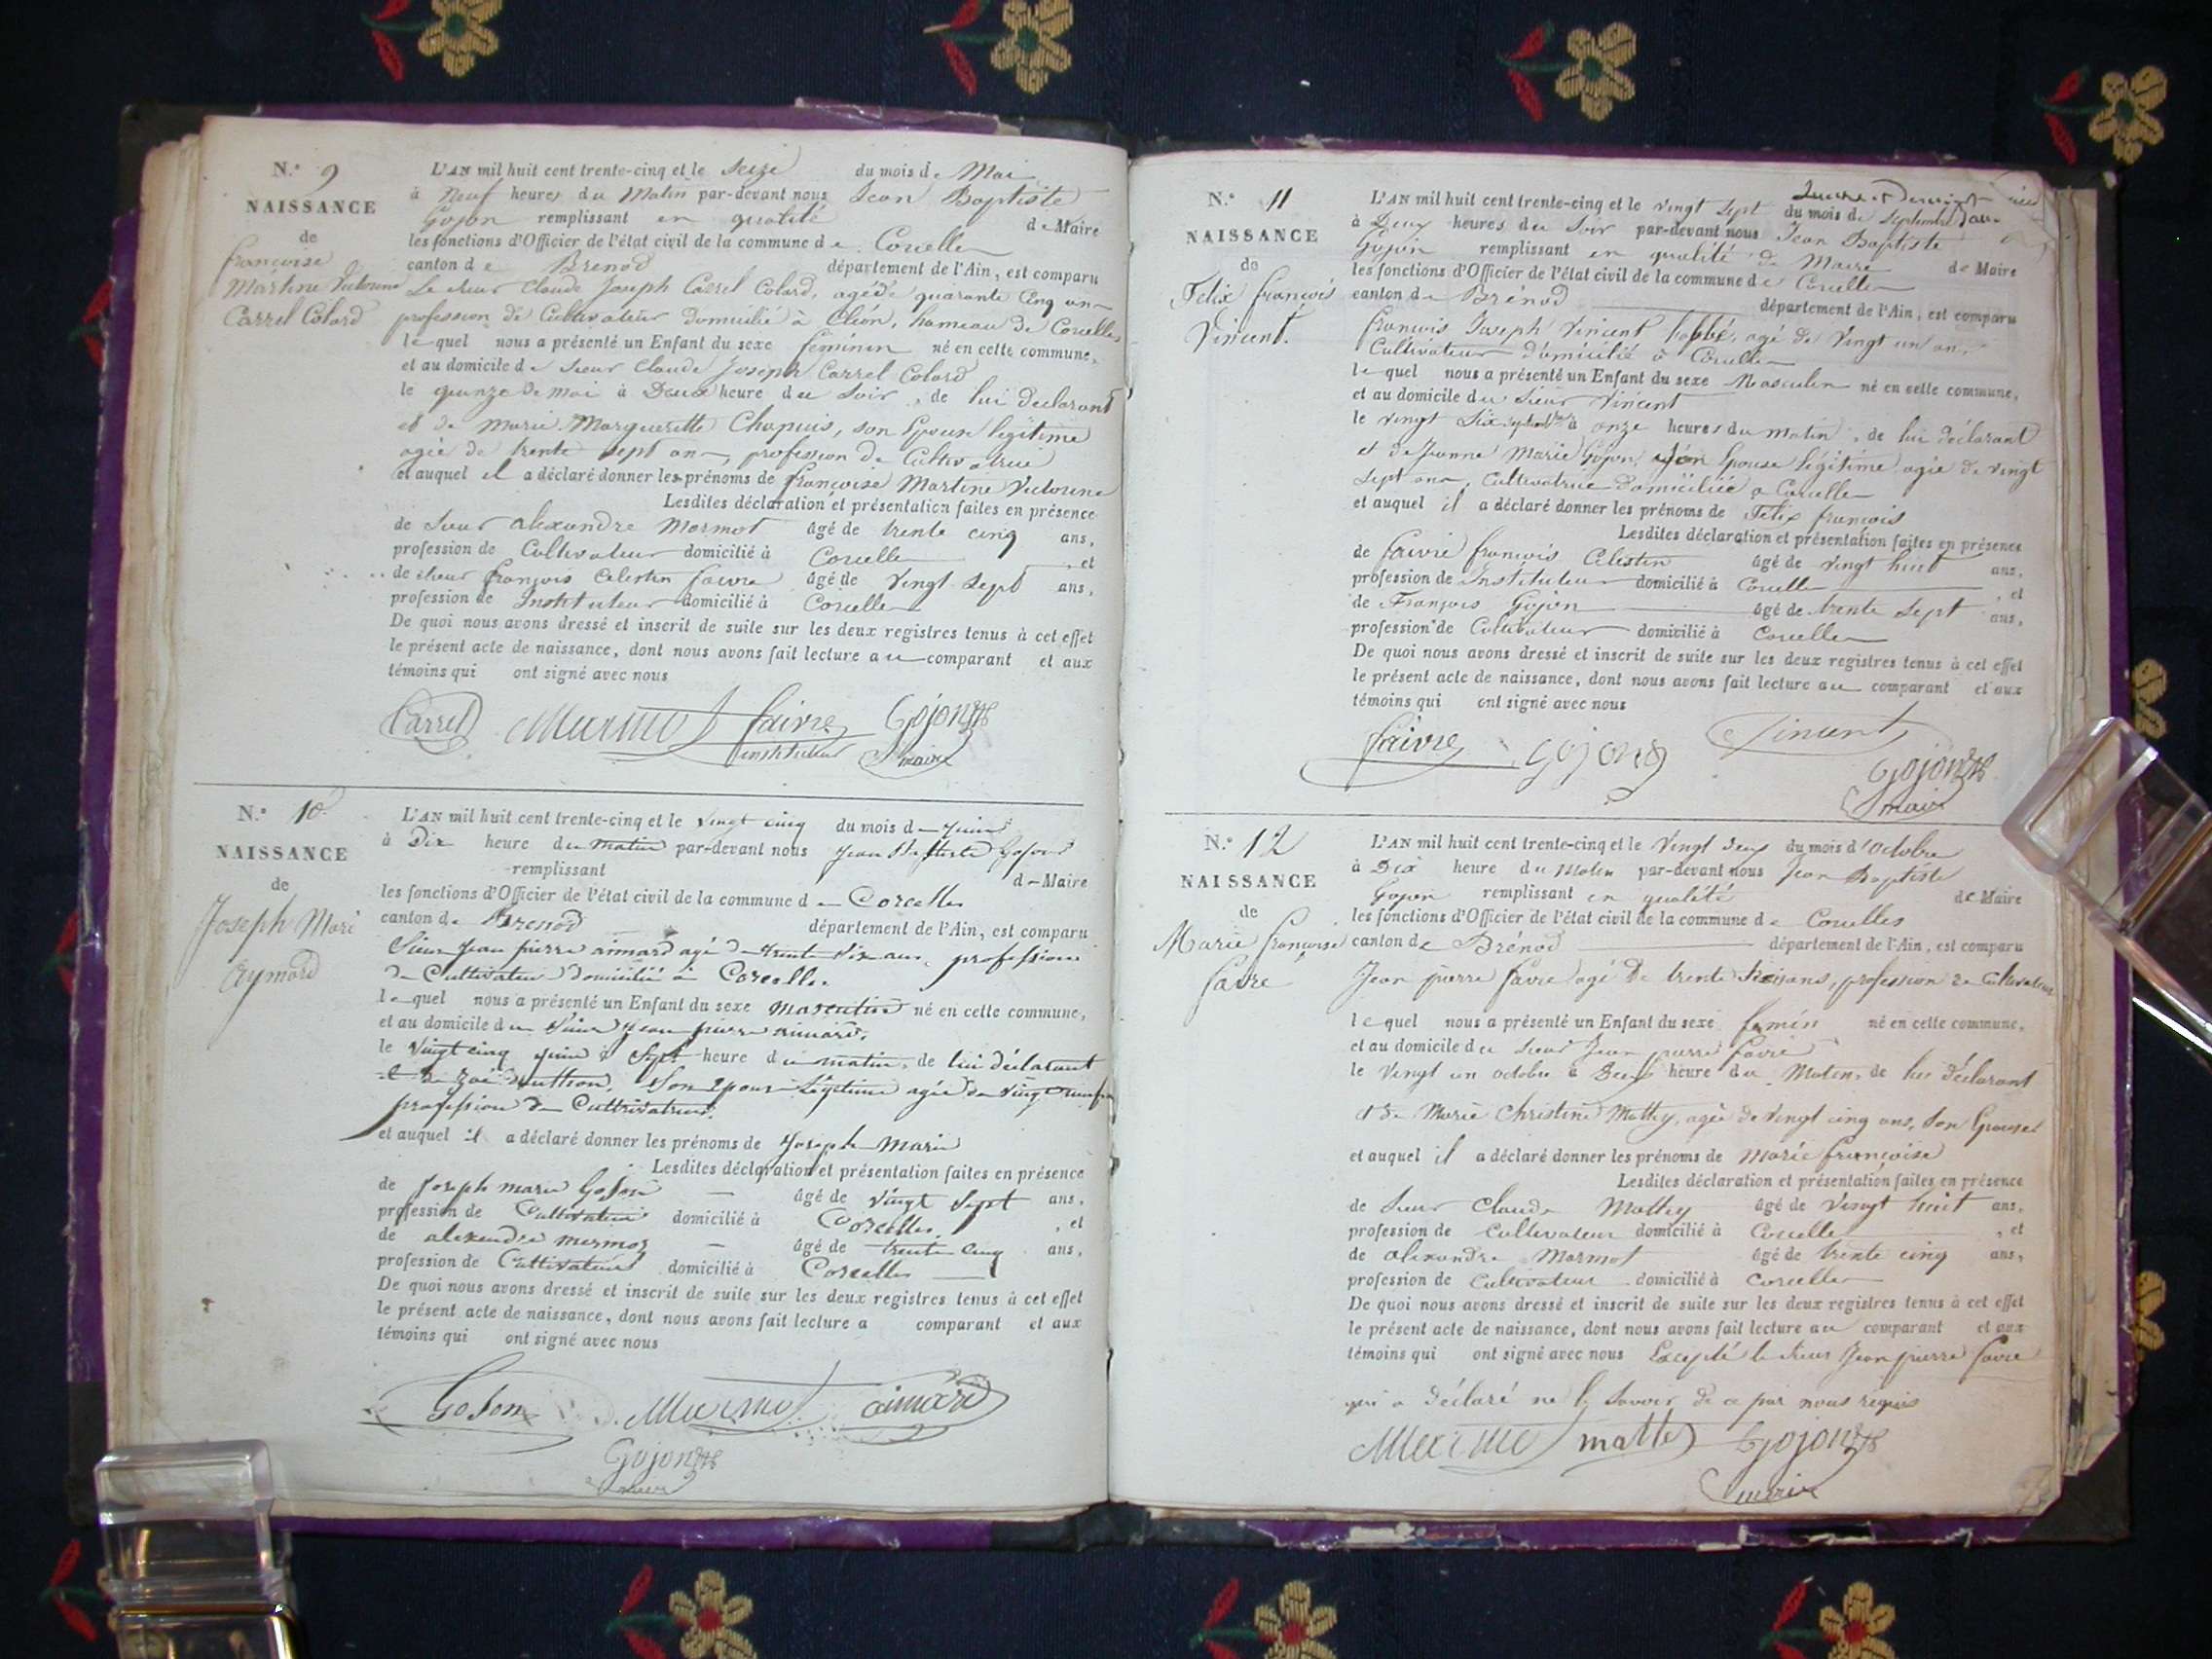 N.° 9
NAISSANCE
de
françoise
Martine Victorine
Carrel Colard
L'AN mil huit cent trente-cinq et le Seize du mois de Mai
à Neuf heures du Matin par-devant nous Jean Baptiste
Gojon remplissant en qualité de Maire
les fonctions d'Officier de l'état civil de la commune de Corcelles
canton de Brenod département de l'Ain, est comparu
Le sieur Claude Joseph Carrel Colard, agé de quarante Cinq ans
profession de Cultivateur domicilié à Cléon, hameau de Corcelles
lequel nous a présenté un Enfant du sexe féminin né en cette commune,
et au domicile de sieur Claude Joseph Carrel Colard
le quinze de mai à Deux heure du Soir, de lui declarant
et de marie Marguerette Chapuis, son Epouse légitime
agée de trente sept ans, profession de Cultivatrice
et auquel il a déclaré donner les prénoms de françoise Martine Victorine
Lesdites déclaration et présentation faites en présence
de Sieur alexandre Mermot âgé de trente cinq ans,
profession de Cultivateur domicilié à Corcelle , et
de sieur françois Celestin faivre âgé de Vingt Sept ans,
profession de Instituteur domicilié à Corcelle
De quoi nous avons dressé et inscrit de suite sur les deux registres tenus à cet effet
le présent acte de naissance, dont nous avons fait lecture au comparant et aux
témoins qui ont signé avec nous
Carrel Mermot faivre Gojon
instituteur maire
N.° 10
NAISSANCE
de
Joseph Mari
Aymard
L'AN mil huit cent trente-cinq et le vingt cinq du mois de Juin
à Dix heure du matin par-devant nous Jean Baptiste Gojon
remplissant de Maire
les fonctions d'Officier de l'état civil de la commune de Corcelles
canton de Brenod département de l'Ain, est comparu
Sieur Jean pierre aimard agé de trente Six ans, profession
de Cultivateur domicilié à Corcelles.
lequel nous a présenté un Enfant du sexe masculin né en cette commune,
et au domicile du Sieur Jean pierre aimard.
le vingt cinq Juin à Sept heure du matin, de lui déclarant
et de Zoé Son Epouse Légitime agée de vingt
profession de Cultivatrice.
et auquel il a déclaré donner les prénoms de Joseph Marie
Lesdites déclaration et présentation faites en présence
de Joseph marie Gojon âgé de vingt Sept ans,
profession de Cultivateur domicilié à Corcelles , et
de alexandre mermoz âgé de trente cinq ans,
profession de Cultivateur domicilié à Corcelles
De quoi nous avons dressé et inscrit de suite sur les deux registres tenus à cet effet
le présent acte de naissance, dont nous avons fait lecture a comparant et aux
témoins qui ont signé avec nous
Gojon Mermot aimard
Gojon
maire
N.° 11
NAISSANCE
de
Felix françois
Vincent.
L'AN mil huit cent trente-cinq et le vingt Sept du mois de Septembre
à Deux heures du Soir par-devant nous Jean Baptiste
Gojon remplissant en qualité de Maire de Maire
les fonctions d'Officier de l'état civil de la commune de Corcelle
canton de Brénod département de l'Ain, est comparu
françois Joseph Vincent agé de Vingt un an,
Cultivateur domicilié à Corcelle
lequel nous a présenté un Enfant du sexe Masculin né en cette commune,
et au domicile du sieur Vincent
le vingt Six septembre à onze heures du matin, de lui déclarant
et de Jeanne Marie Gojon, son Epouse légitime agée de vingt
Sept ans, Cultivatrice domiciliée à Corcelle
et auquel il a déclaré donner les prénoms de Felix françois
Lesdites déclaration et présentation faites en présence
de faivre françois Célestin âgé de vingt huit ans,
profession de Instituteur domicilié à Corcelle , et
de François Gojon âgé de trente Sept ans,
profession de Cultivateur domicilié à Corcelle
De quoi nous avons dressé et inscrit de suite sur les deux registres tenus à cet effet
le présent acte de naissance, dont nous avons fait lecture au comparant et aux
témoins qui ont signé avec nous
faivre gojon Vincent
Gojon
maire
N.° 12
NAISSANCE
de
Marie françoise
favre
L'AN mil huit cent trente-cinq et le Vingt deux du mois d'Octobre
à Dix heure du Matin par-devant nous Jean Baptiste
Gojon remplissant en qualité de Maire
les fonctions d'Officier de l'état civil de la commune de Corcelles
canton de Brénod département de l'Ain, est comparu
Jean pierre favre agé de trente ans, profession de Cultivateur
lequel nous a présenté un Enfant du sexe femin né en cette commune,
et au domicile du sieur Jean pierre favre
le Vingt un octobre à Deux heure du Maten, de lui déclarant
et de Marie Christine Mathey, agée de vingt cinq ans, son Epouse
et auquel il a déclaré donner les prénoms de Marie françoise
Lesdites déclaration et présentation faites en présence
de Sieur Claude Mathey âgé de Vingt huit ans,
profession de Cultivateur domicilié à Corcelle , et
de alexandre Marmot âgé de trente cinq ans,
profession de Cultivateur domicilié à Corcelle
De quoi nous avons dressé et inscrit de suite sur les deux registres tenus à cet effet
le présent acte de naissance, dont nous avons fait lecture au comparant et aux
témoins qui ont signé avec nous Excepté le sieur Jean pierre favre
qui a déclaré ne le Savoir de ce par nous requis
Mermot matte Gojon
maire